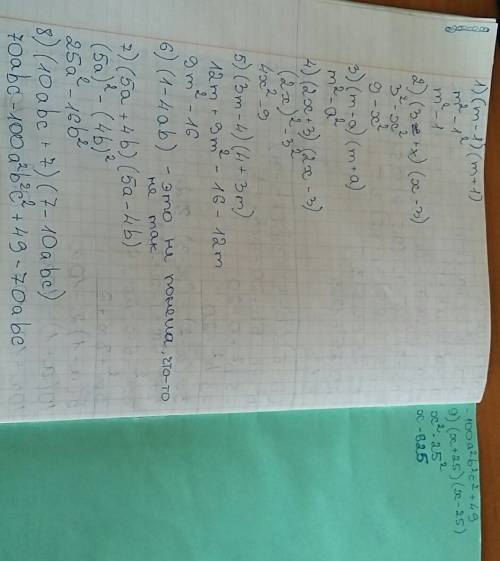 1) (m-1) (m+1)
m²-1²
m²-1
2) (3+x) (x-3)
3²-x²
9-x²
3) (m-a) (m+a)
m²-a²
4) (2x+3) (2x-3)
(2x)²-3²
4x²-9
5) (3m-4) (4+3m)
12m+9m²-16-12m
9m²-16
6) (1-4ab) - это не поняла, что-то
не так
7) (5a+4b) (5a-4b)
(5a)²-(4b)²
25a²-16b²
8) (10abc+7) (7-10abc)
70abc-100a²b²c²+49-70abc
-100a²b²c²+49
9) (x+25) (x-25)
x²-25²
x-625